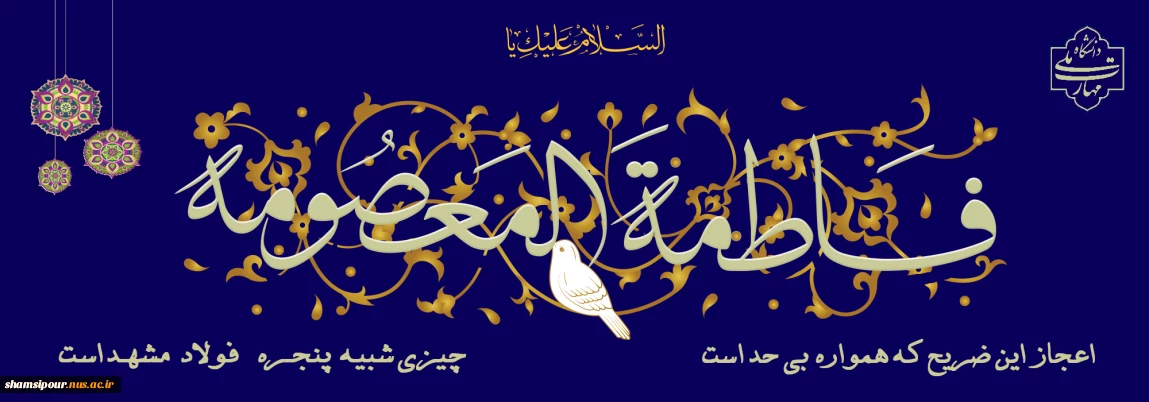 السَّلامُ عَلیْكِ یا
دانشگاه ملی مهارت
فَاطِمَةَ المَعصُومه
اعجاز این ضریح که همواره بی حد است
چیزی شبیه پنجره فولاد مشهد است
shamsipour.nus.ac.ir